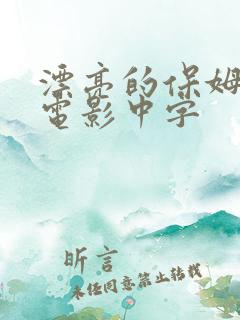 漂亮的保姆
電影中字
昕言
未经同意禁止转载